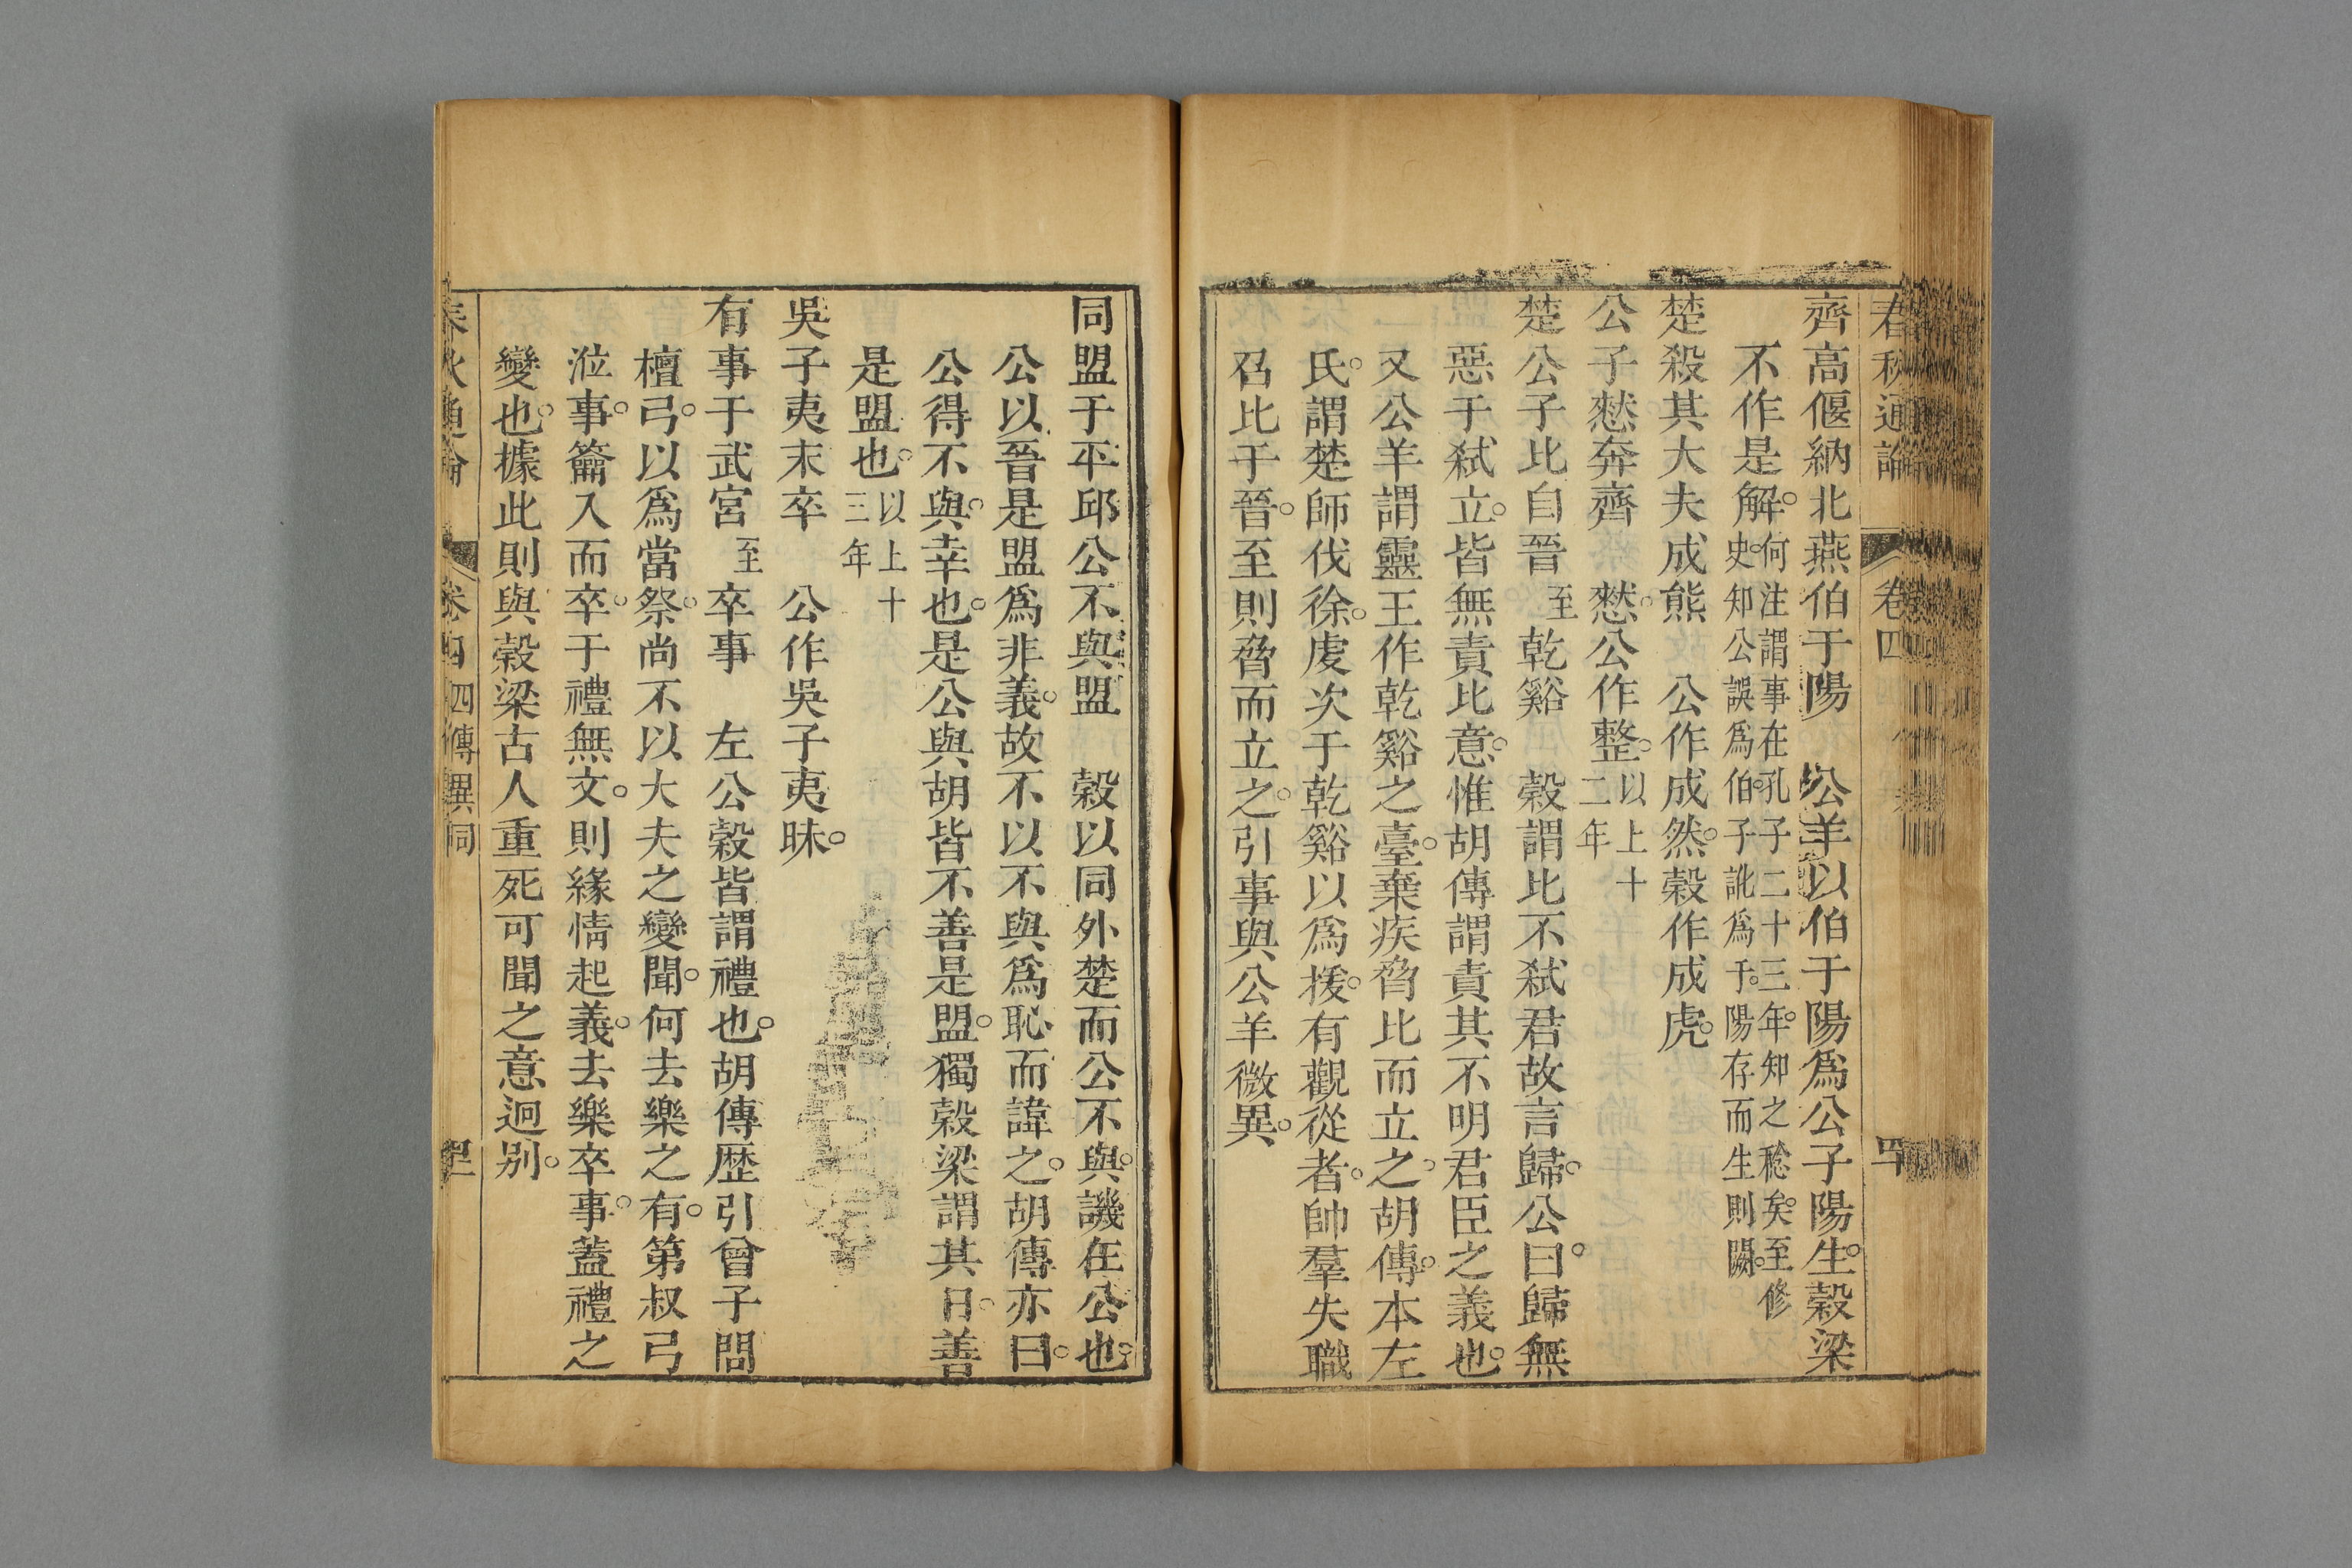 春秋通論 卷四
齊高偃納北燕伯于陽　公羊以伯于陽爲公子陽生。穀梁
不作是解。何注謂事在孔子二十三年。知之稔矣。至修
史。知公誤爲伯。子訛爲于。陽存而生則闕。
楚殺其大夫成熊　公作成然。穀作成虎。
公子憖奔齊　憖。公作整。以上十
二年
楚公子比自晉至乾谿　穀謂比不弒君故言歸。公曰。歸無
惡于弒立。皆無責比意。惟胡傳謂責其不明君臣之義也。
又公羊謂靈王作乾谿之臺。棄疾脅比而立之。胡傳。本左
氏。謂楚師伐徐。虔次于乾谿以爲援。有觀從者。帥羣失職
召比于晉。至則脅而立之。引事與公羊微異。
同盟于平邱公不與盟　穀以同外楚而公不與。譏在公也。
公以晉是盟爲非義。故不以不與爲恥而諱之。胡傳亦曰。
公得不與。幸也。是公與胡皆不善是盟。獨穀梁謂其日。善
是盟也。以上十
三年
吳子夷末卒　公作吳子夷昧。
有事于武宮至卒事　左公穀皆謂禮也。胡傳歷引曾子問
檀弓。以爲當祭。尚不以大夫之變聞。何去樂之有。第叔弓
涖事。籥入而卒。于禮無文。則緣情起義。去樂卒事。蓋禮之
變也。據此則與穀梁古人重死可聞之意迥别。
春秋通論 卷四 四傳異同